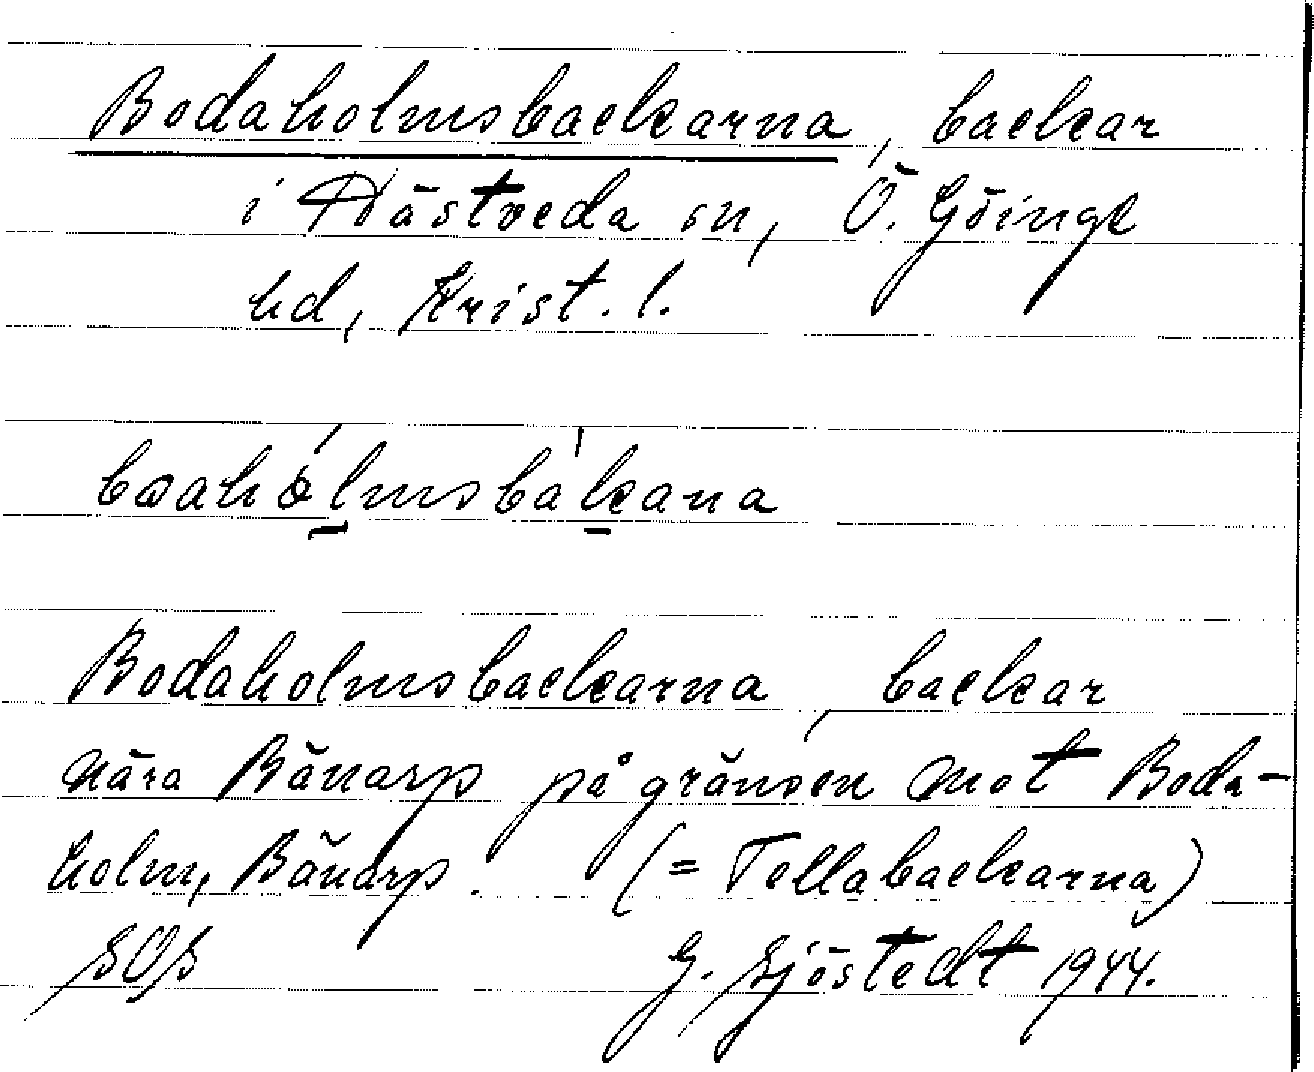 Bodaholmsbackarna, backar
i Hästveda sn, Ö. Göinge
hd, Krist. l.
boahólmsbákana
Bodaholmsbackarna, backar
nära Bänarp på gränsen mot Boda-
holm, Bänarp. (= Tellabackarna)
SOS G. Sjöstedt 1944.